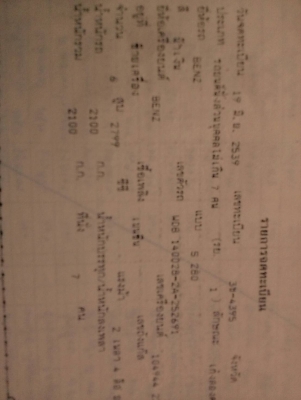 รายการจดทะเบียน
วันจดทะเบียน 19 มิ.ย. 2539 เลขทะเบียน 3ร-4395 จังหวัด
ประเภท รถยนต์นั่งส่วนบุคคลไม่เกิน 7 คน (รย. 1 ) ลักษณะ
ยี่ห้อรถ BENZ แบบ S 280
สี น้ำเงิน เลขตัวรถ
ยี่ห้อเครื่องยนต์ BENZ เลขเครื่องยนต์
อยู่ที่ เชื้อเพลิง เบนซิน
จำนวน 6 สูบ 2799 ซีซี แรงม้า 2 เพลา 4 ล้อ
น้ำหนักรถ 2100 ก.ก. น้ำหนักบรรทุก/น้ำหนักลงเพลา
น้ำหนักรวม 2100 ก.ก. ที่นั่ง 7 คน